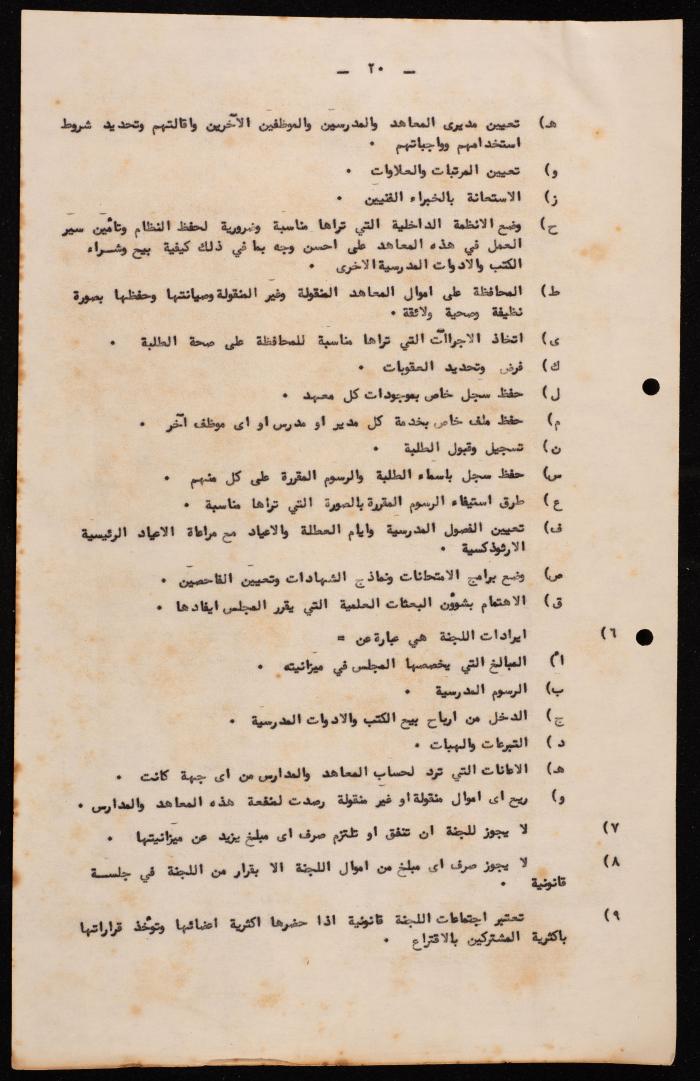 — ٢٠ —
هـ) تعيين مديرى المعاهد والمدرسين والموظفين الآخرين واقالتهم وتحديد شروط
استخدامهم وواجباتهم .
و) تعيين المرتبات والعلاوات .
ز) الاستعانة بالخبراء الفنيين .
ح) وضع الانظمة الداخلية التي تراها مناسبة وضرورية لحفظ النظام وتأمين سير
العمل في هذه المعاهد على احسن وجه بما في ذلك كيفية بيع وشـراء
الكتب والادوات المدرسية الاخرى .
ط) المحافظة على اموال المعاهد المنقولة وغير المنقولة وصيانتها وحفظها بصورة
نظيفة وصحية ولائقة .
ى) اتخاذ الاجراآت التي تراها مناسبة للمحافظة على صحة الطلبة .
ك) فرض وتحديد العقوبات .
ل) حفظ سجل خاص بموجودات كل معهد .
م) حفظ ملف خاص بخدمة كل مدير او مدرس او اى موظف آخر .
ن) تسجيل وقبول الطلبة .
س) حفظ سجل باسماء الطلبة والرسوم المقررة على كل منهم .
ع) طرق استيفاء الرسوم المقررة بالصورة التي تراها مناسبة .
ف) تعيين الفصول المدرسية وايام العطلة والاعياد مع مراعاة الاعياد الرئيسية
الارثوذكسية .
ص) وضع برامج الامتحانات ونماذج الشهادات وتعيين الفاحصين .
ق) الاهتمام بشؤون البعثات العلمية التي يقرر المجلس ايفادها .
٦) ايرادات اللجنة هي عبارة عن =
أ) المبالغ التي يخصصها المجلس في ميزانيته .
ب) الرسوم المدرسية .
ج) الدخل من ارباح بيع الكتب والادوات المدرسية .
د) التبرعات والهبات .
هـ) الاعانات التي ترد لحساب المعاهد والمدارس من اى جهة كانت .
و) ريع اى اموال منقولة او غير منقولة رصدت لمنفعة هذه المعاهد والمدارس .
٧) لا يجوز للجنة ان تنفق او تلتزم صرف اى مبلغ يزيد عن ميزانيتها .
٨) لا يجوز صرف اى مبلغ من اموال اللجنة الا بقرار من اللجنة في جلسـة
قانونية .
٩) تعتبر اجتماعات اللجنة قانونية اذا حضرها اكثرية اعضائها وتؤخذ قراراتها
باكثرية المشتركين بالاقتراع .